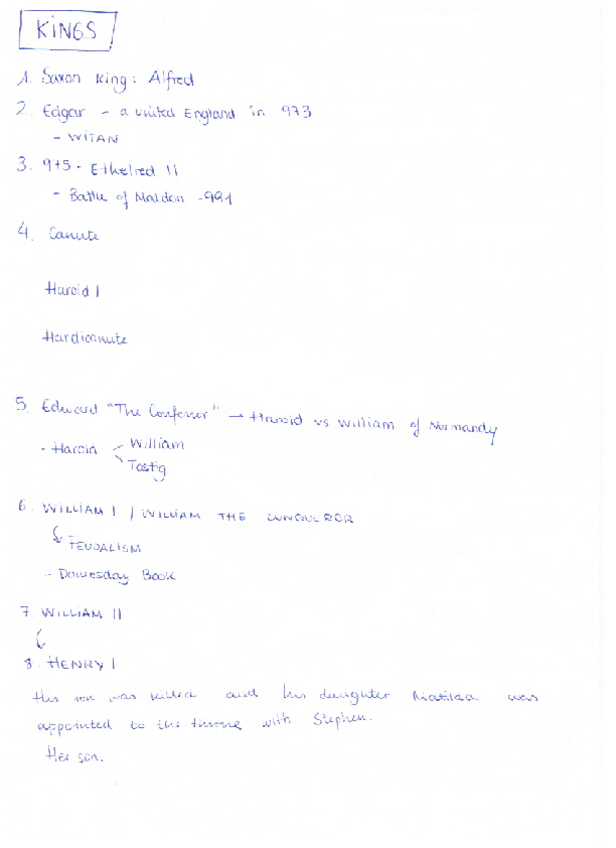 KINGS
1. Saxon King: Alfred
2. Edgar - a united England in 973
- WITAN
3. 975 - Ethelred II
- Battle of Maldon - 991
4. Canute
Harold I
Hardicanute
5. Edward "The Confessor" → Harold vs William of Normandy
- Harold William
Tostig
6. WILLIAM I / WILLIAM THE CONQUEROR
FEUDALISM
- Domesday Book
7. WILLIAM II
8. HENRY I
His son was killed and his daughter Matilda was
appointed to the throne with Stephen.
Her son.